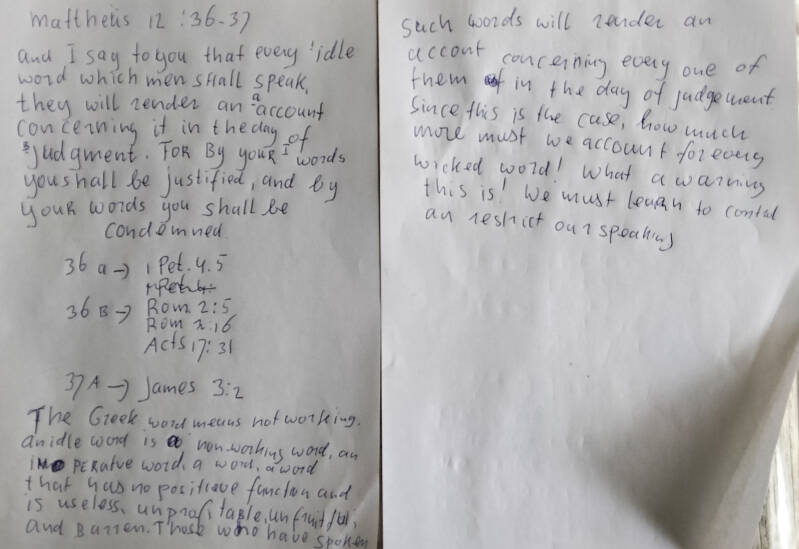 mattheüs 12:36-37
and I say to you that every 1idle
word which men shall speak,
they will render an a account
concerning it in the day of
B judgment. For By your 1 words
you shall be justified, and by
your words you shall be
condemned
36 a → 1 Pet. 4.5
36 B → Rom 2:5
Rom 2:16
Acts 17:31
37A → James 3:2
The Greek word means not working.
an idle word is a non-working word, an
imoperatve word, a word, a word
that has no positieve function and
is useless, unprofitable, unfruitful,
and Barren. Those who have spoken
such words will render an
account concerning every one of
them in the day of judgement
Since this is the case, how much
more must we account for every
wicked word! What a warning
this is! We must learn to contol
an restrict our speaking